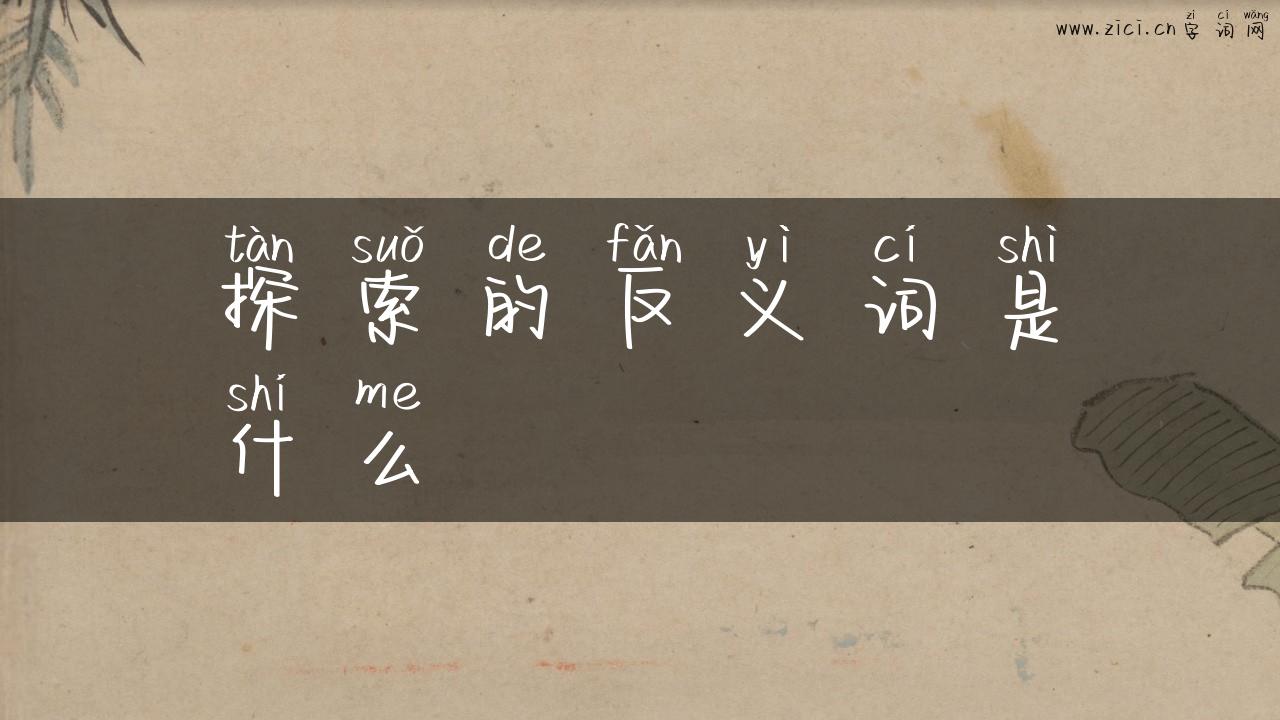 zi cí wǎng
www.zici.cn字词网
tàn suǒ de fǎn yì cí shì
探索的反义词是
shí me
什么